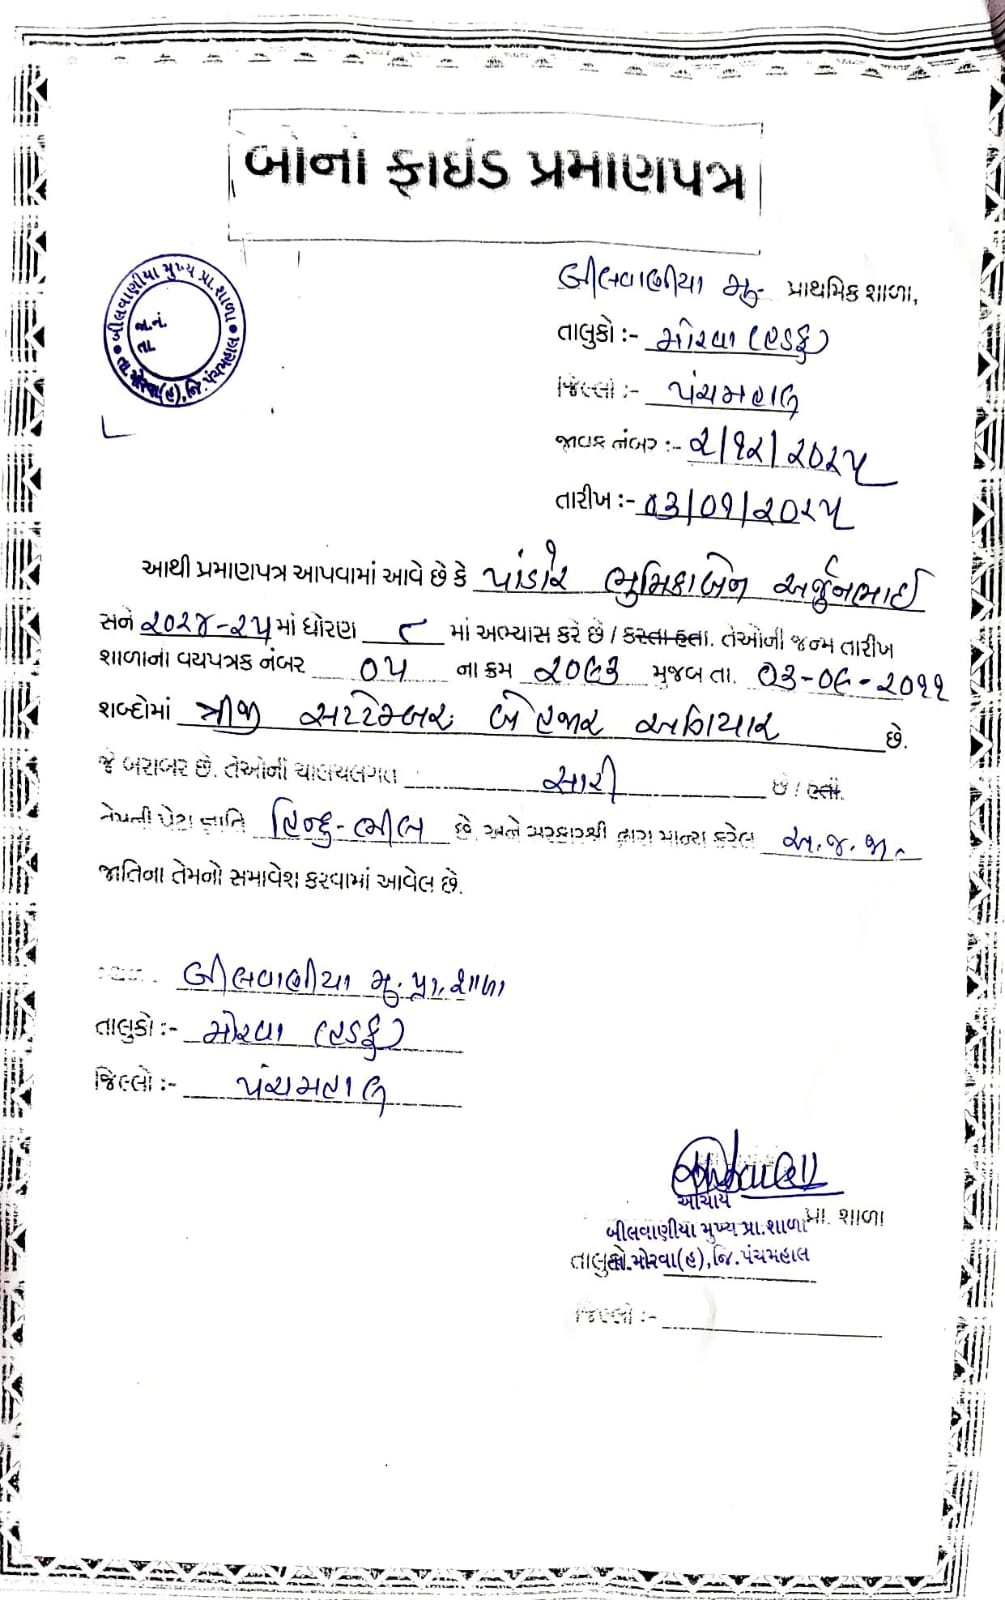 બોના ફાઇડ પ્રમાણપત્ર
બીલવાણીયા મુખ્ય પ્રા. શાળા
જા.નં.
તા.
તા. મોરવા(હ), જિ. પંચમહાલ
બીલવાણીયા મુ- પ્રાથમિક શાળા,
તાલુકો :- મોરવા (હડફ)
જિલ્લો :- પંચમહાલ
જાવક નંબર :- ૨/૧૨/૨૦૨૫
તારીખ :- ૦૩/૦૧/૨૦૨૫
આથી પ્રમાણપત્ર આપવામાં આવે છે કે પાંડોર ભુમિકાબેન અર્જુનભાઈ
સને ૨૦૨૪-૨૫ માં ધોરણ ૮ માં અભ્યાસ કરે છે / કરતા હતા. તેઓની જન્મ તારીખ
શાળાના વયપત્રક નંબર ૦૫ ના ક્રમ ૨૦૬૩ મુજબ તા. ૦૩-૦૯-૨૦૧૧
શબ્દોમાં ત્રીજી સપ્ટેમ્બર બે હજાર અગિયાર છે.
જે બરાબર છે. તેઓની ચાલચલગત સારી છે / હતી.
તેમની પેટા જ્ઞાતિ હિન્દુ-ભીલ છે અને સરકારશ્રી દ્વારા માન્ય કરેલ અ.જ.જા.
જાતિના તેમનો સમાવેશ કરવામાં આવેલ છે.
બીલવાણીયા મુ. પ્રા. શાળા
તાલુકો :- મોરવા (હડફ)
જિલ્લો :- પંચમહાલ
આચાર્ય
બીલવાણીયા મુખ્ય પ્રા.શાળા પ્રા. શાળા
તાલુકો તા.મોરવા(હ),જિ.પંચમહાલ
જિલ્લો :-